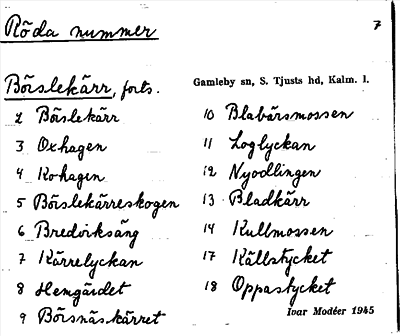 Röda nummer
7
Börslekärr, forts.
Gamleby sn, S. Tjusts hd, Kalm. l.
2 Börslekärr
3 Oxhagen
4 Kohagen
5 Börslekärreskogen
6 Bredörksäng
7 Kärrelyckan
8 Hemgärdet
9 Börsnäskärret
10 Blabärsmossen
11 Loglyckan
12 Nyodlingen
13 Bladkärr
14 Kullmossen
17 Källstycket
18 Oppastycket
Ivar Modéer 1945